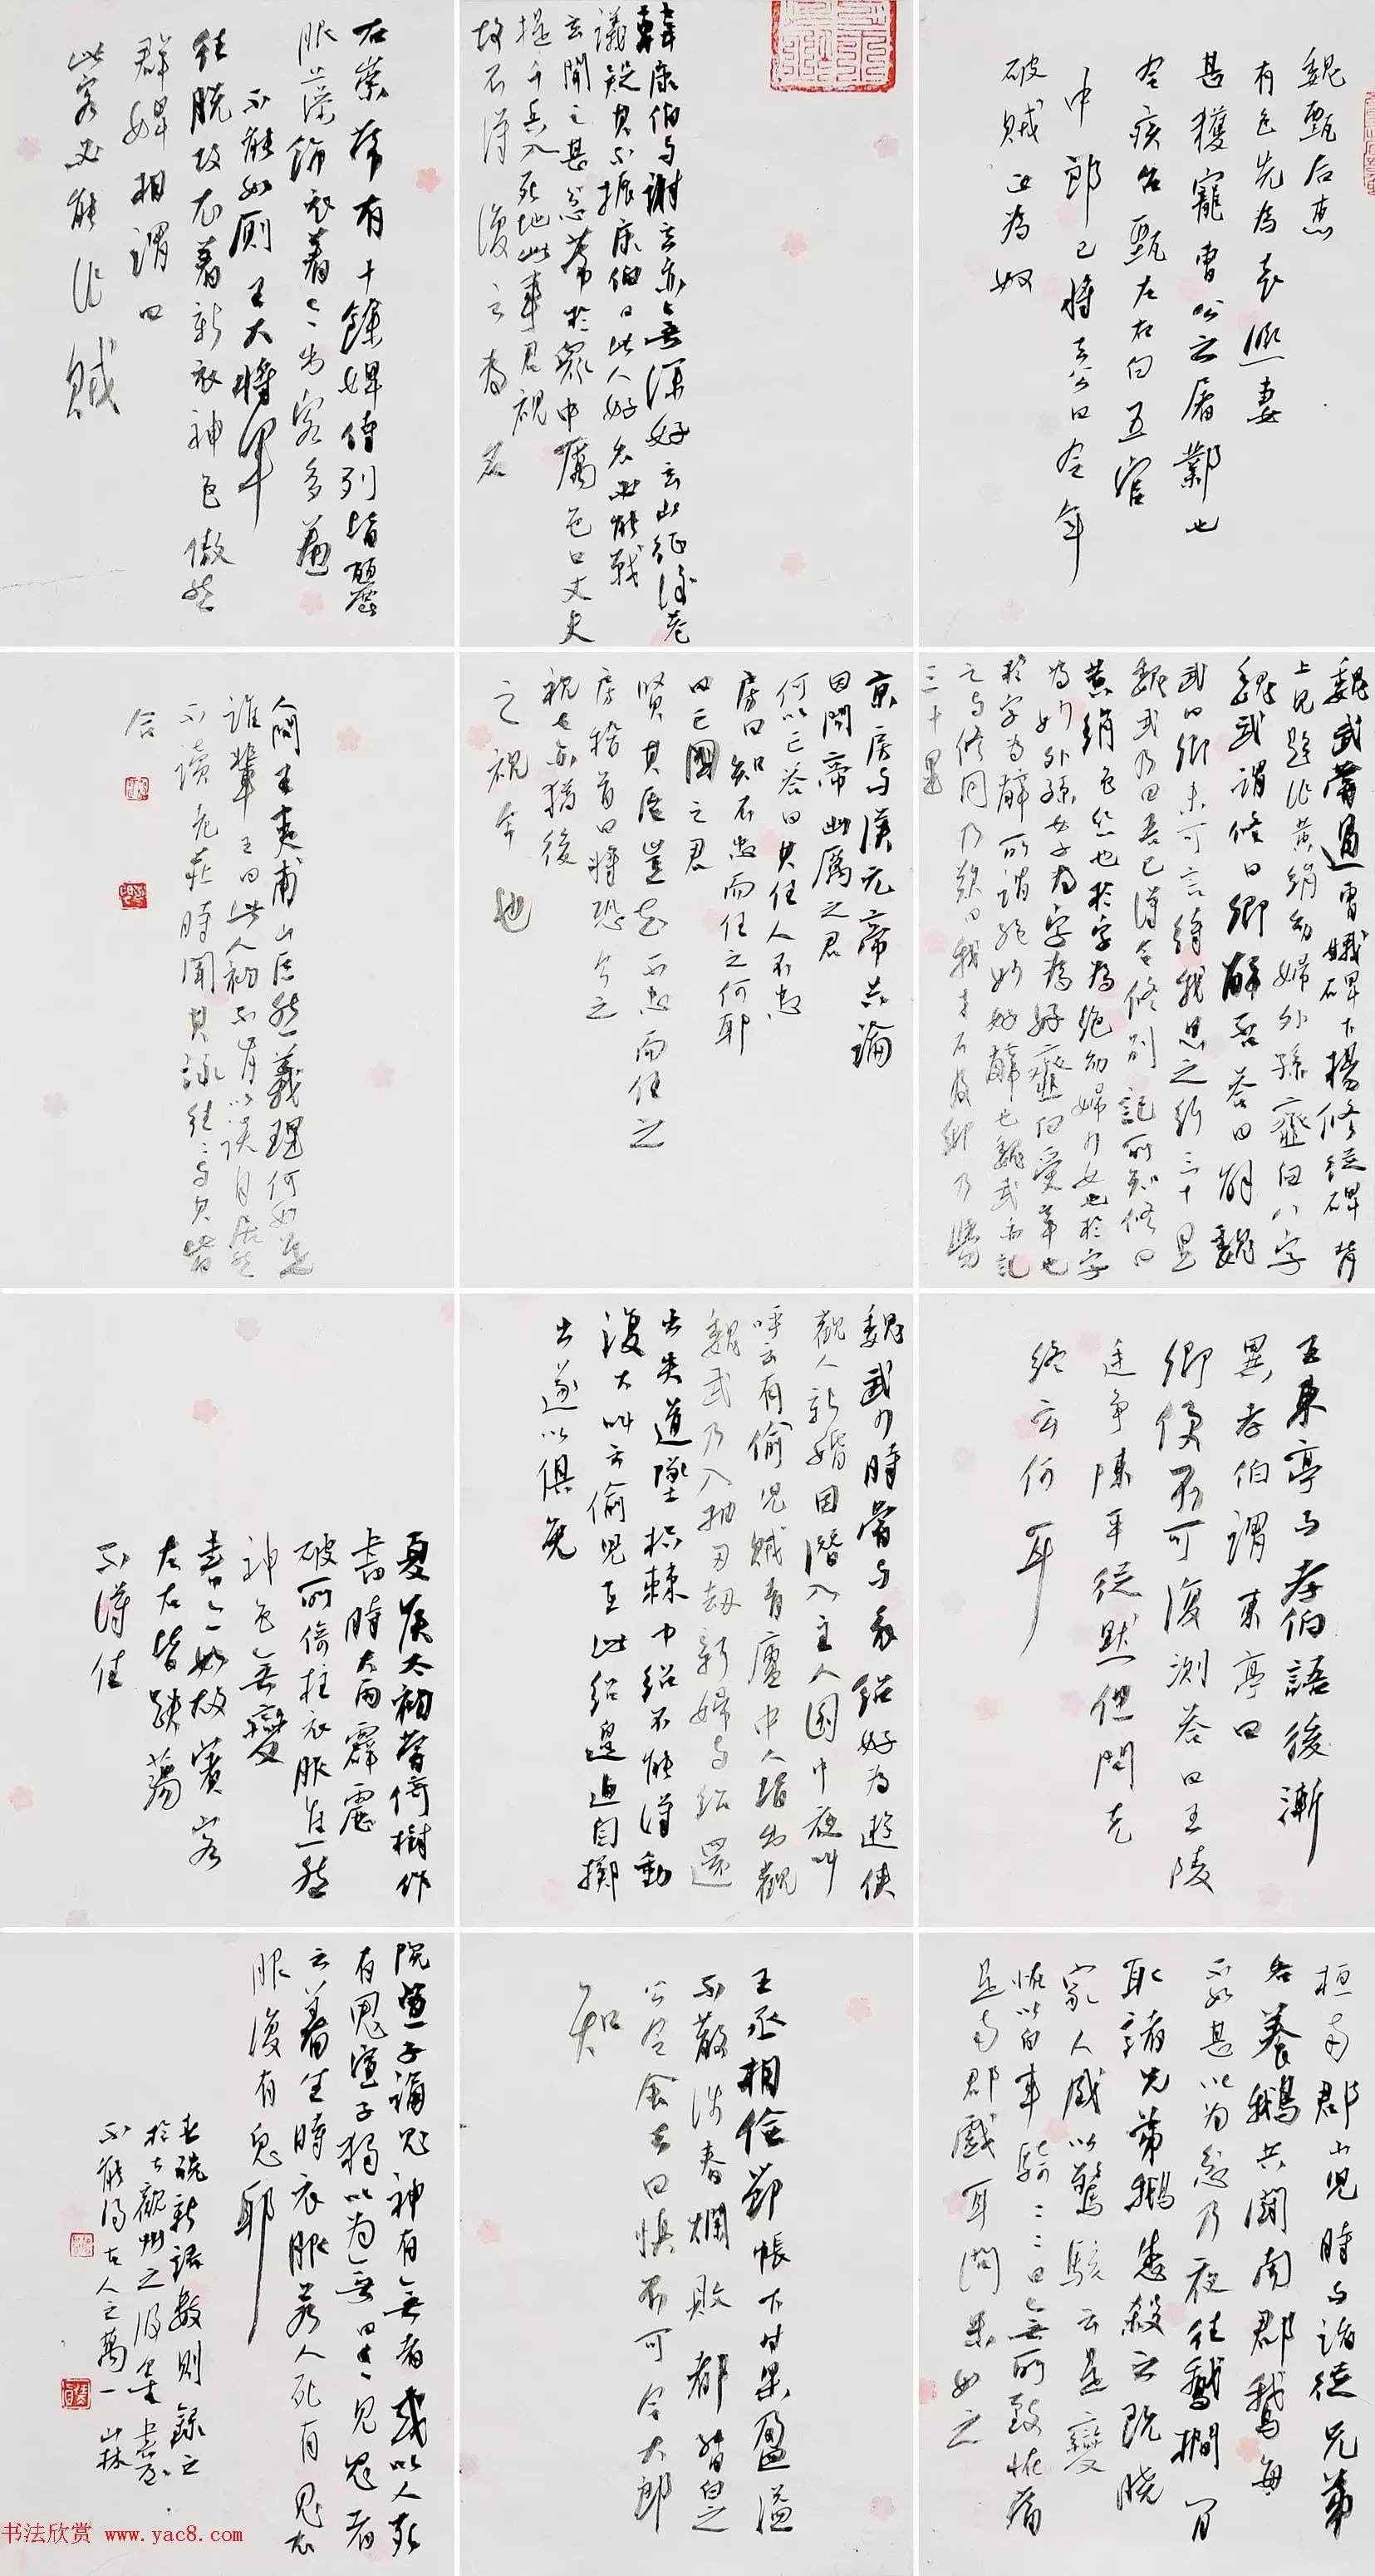 魏甄后惠
有色先為袁熙妻
甚獲寵曹公之屠鄴也
令疾召甄左右白五官
中郎已將去公曰今年
破賊正為奴
韓康伯與謝玄亦無深好玄北征後巷
議疑其不振康伯曰此人好名必能戰
玄聞之甚忿常於眾中厲色曰丈夫
提千兵入死地以事君親
故不得復云為名
石崇常有十餘婢侍列皆麗
服藻飾
不能如廁王大將軍
往脫故衣著新衣神色傲然
群婢相謂曰
此客必能作賊
魏武嘗過曹娥碑下楊修從碑背
上見題作黃絹幼婦外孫齏臼八字
魏武謂修曰卿解否答曰解魏
武曰卿未可言待我思之行三十里
魏武乃曰吾已得令修別記所知修曰
黃絹色絲也於字為絕幼婦少女也於字
為妙外孫女子也於字為好齏臼受辛也
於字為辭所謂絕妙好辭也魏武亦記
之與修同乃歎曰我才不及卿乃覺
三十里
京房與漢元帝共論
因問帝幽厲之君
何以亡答曰其任人不忠
房曰知不忠而任之何耶
曰亡國之君
賢其臣豈知不忠而任之
房稽首曰將恐今之
視古亦猶後
之視今也
問王夷甫山巨源義理何如是
誰輩王曰此人初不肯以談自居然
不讀老莊時聞其詠往往與其旨
合
王東亭與孝伯語後漸
異孝伯謂東亭曰
卿便不可復測答曰王陵
廷爭陳平從默但問克
終云何耳
魏武少時嘗與袁紹好為遊俠
觀人新婚因潛入主人園中夜叫
呼云有偷兒賊青廬中人皆出觀
魏武乃入抽刃劫新婦與紹還
出失道墜枳棘中紹不能得動
復大叫云偷兒在此紹遑迫自擲
出遂以俱免
夏侯太初嘗倚樹作
書時大雨霹靂
破所倚柱衣服焦然
神色無變
書亦如故賓客
左右皆跌蕩
不得住
桓南郡小兒時與諸從兄弟
各養鵝共鬥南郡鵝每
不如甚以為忿乃夜往鵝欄間
取諸兄弟鵝悉殺之既曉
家人咸以驚駭云是變
怪以白車騎車騎曰無所致怪當
是南郡戲耳問果如之
王丞相儉節帳下甘果盈溢
不散涉春爛敗都督白之
公令舍去曰慎不可令大郎
知
阮宣子論鬼神有無者或以人死
有鬼宣子獨以為無曰今見鬼者
云著生時衣服若人死有鬼衣
服復有鬼耶
右錄新語數則錄之
不能得古人之萬一 山林
书法欣赏 www.yac8.com